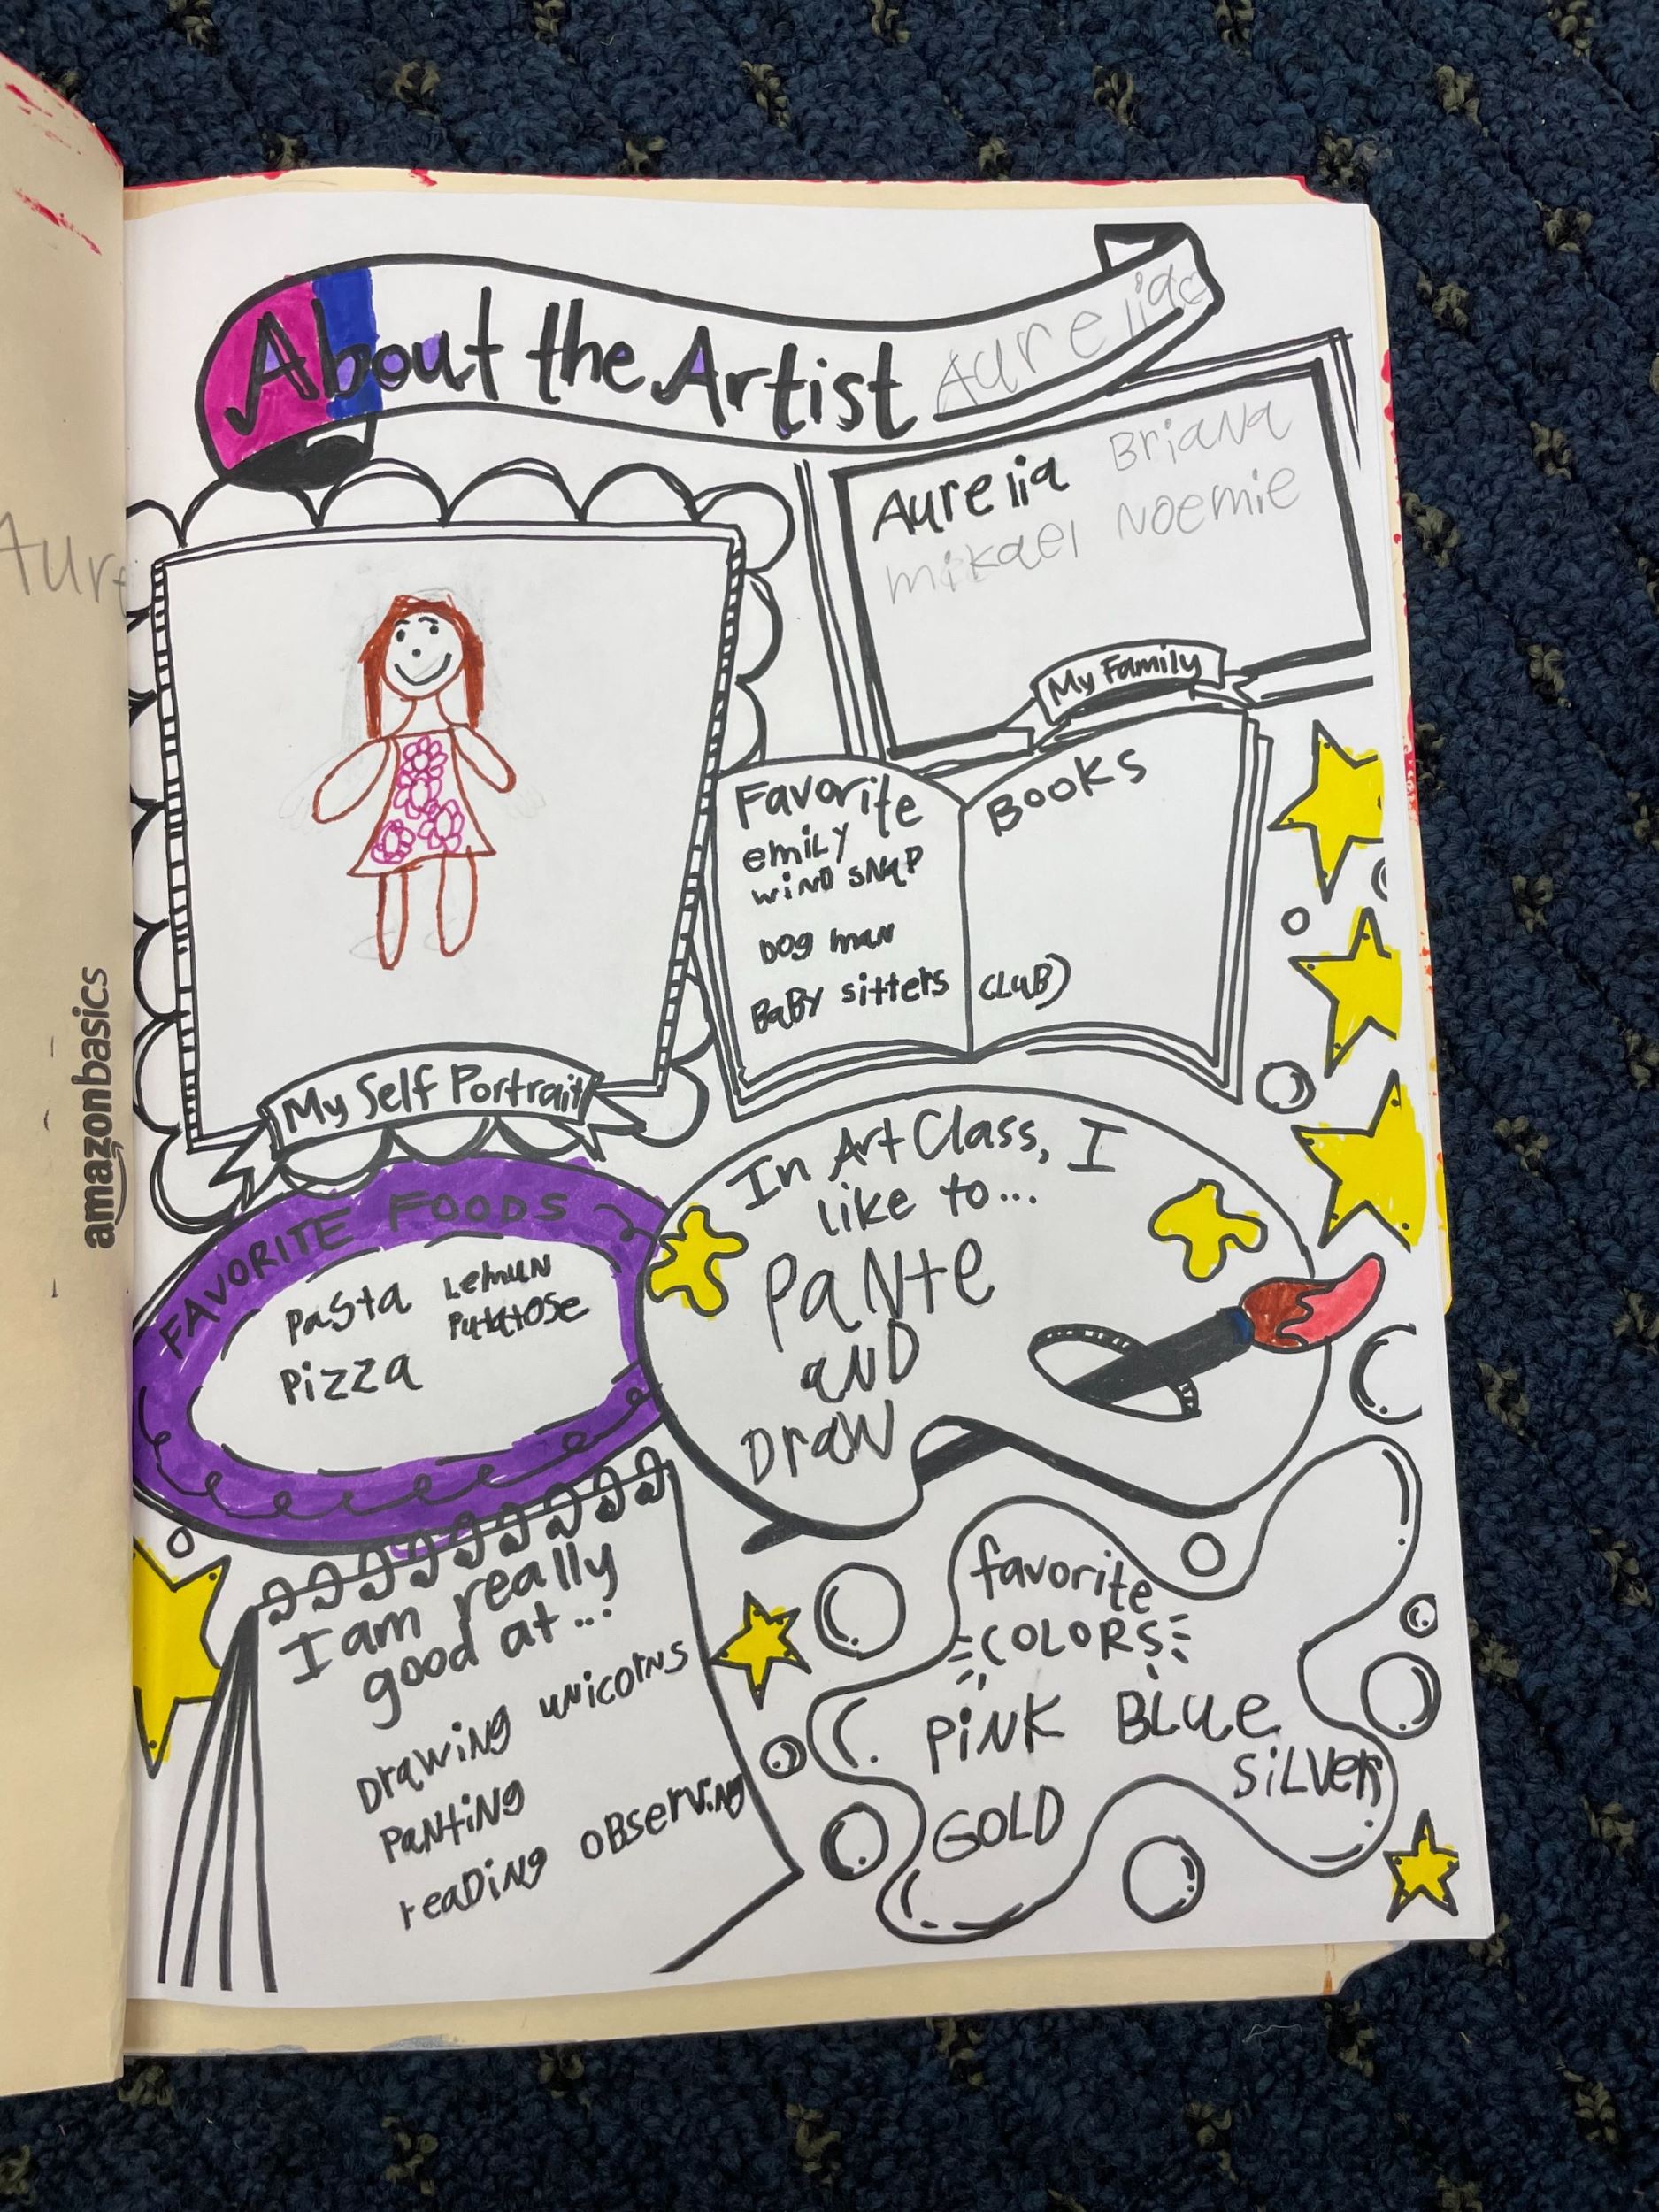 About the Artist Aurelia
Aurelia Briana
mikael Noemie
My Family
Favorite Books
emily
wind snap
Dog man
Baby sitters club)
My Self Portrait
FAVORITE FOODS
Pasta Lemun
Putatose
Pizza
In Art Class, I
like to...
PaNte
aND
Draw
I am really
good at...
Drawing unicorns
Panting
reaDing oBserving
favorite
COLORS
PiNK BLue
SiLver
GOLD
amazonbasics